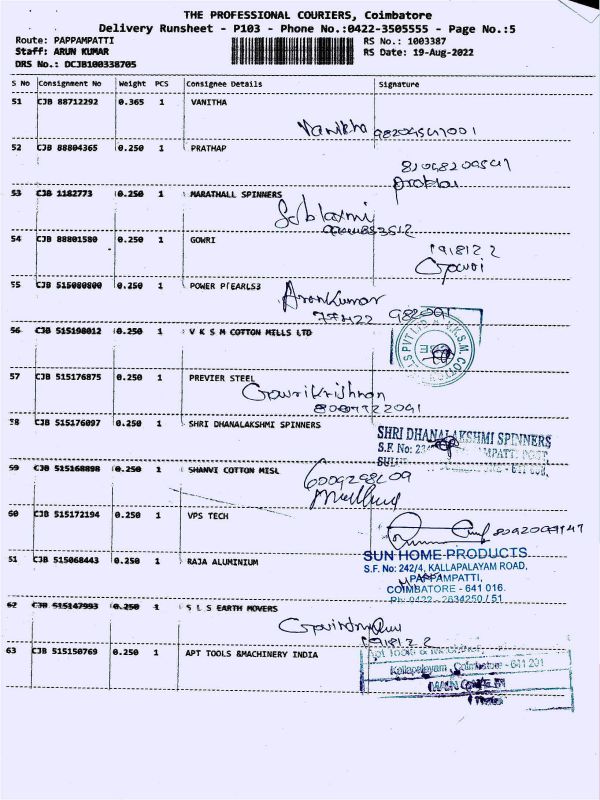 THE PROFESSIONAL COURIERS, Coimbatore
Delivery Runsheet - P103 - Phone No.:0422-3505555 - Page No.:5
Route: PAPPAMPATTI RS No.: 1003387
Staff: ARUN KUMAR RS Date: 19-Aug-2022
DRS No.: DCJB100338705
S No Consignment No Weight PCS Consignee Details Signature
51 CJB 88712292 0.365 1 VANITHA
Vanitha
52 CJB 88804365 0.250 1 PRATHAP
53 CJB 1182773 0.250 1 MARATHALL SPINNERS
54 CJB 88801580 0.250 1 GOWRI
191812 2
Gowri
55 CJB 515080800 0.250 1 POWER
ArunKumar
56 CJB 515198012 0.250 1 V K S M COTTON MILLS LTD
57 CJB 515176875 0.250 1 PREVIER STEEL
Gowrikrishnan
58 CJB 515176097 0.250 1 SHRI DHANALAKSHMI SPINNERS
SHRI DHANALAKSHMI SPINNERS
S.F. No:
59 CJB 515168898 0.250 1 SHANVI COTTON MISL
60 CJB 515172194 0.250 1 VPS TECH
51 CJB 515068443 0.250 1 RAJA ALUMINIUM
SUN HOME PRODUCTS
S.F. No: 242/4, KALLAPALAYAM ROAD,
PAPPAMPATTI,
COIMBATORE - 641 016.
Ph: 0422 - 2634250 / 51
62 CJB 515147993 0.250 1 S L S EARTH MOVERS
191812 2
63 CJB 515150769 0.250 1 APT TOOLS &MACHINERY INDIA
Kallapalayam, Coimbatore - 641 201